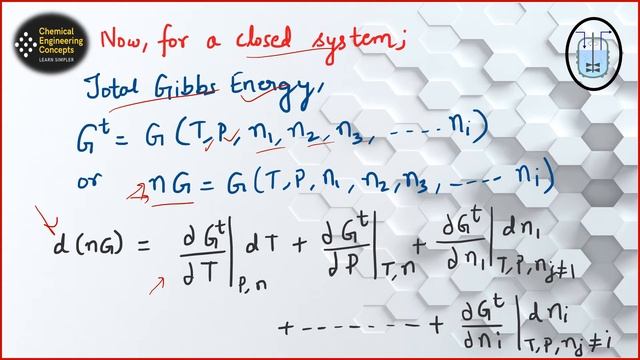 Chemical
Engineering
Concepts
LEARN SIMPLER
Now, for a closed system;
Total Gibbs Energy,
G^t = G (T, P, n₁, n₂, n₃, ..... nᵢ)
or nG = G(T, P, n₁, n₂, n₃, ..... nᵢ)
d(nG) = ∂G^t/∂T |P,n dT + ∂G^t/∂P |T,n + ∂G^t/∂n₁ |T,P,nⱼ≠1 dn₁
+ ------- + ∂G^t/∂nᵢ |T,P,nⱼ≠i dnᵢ